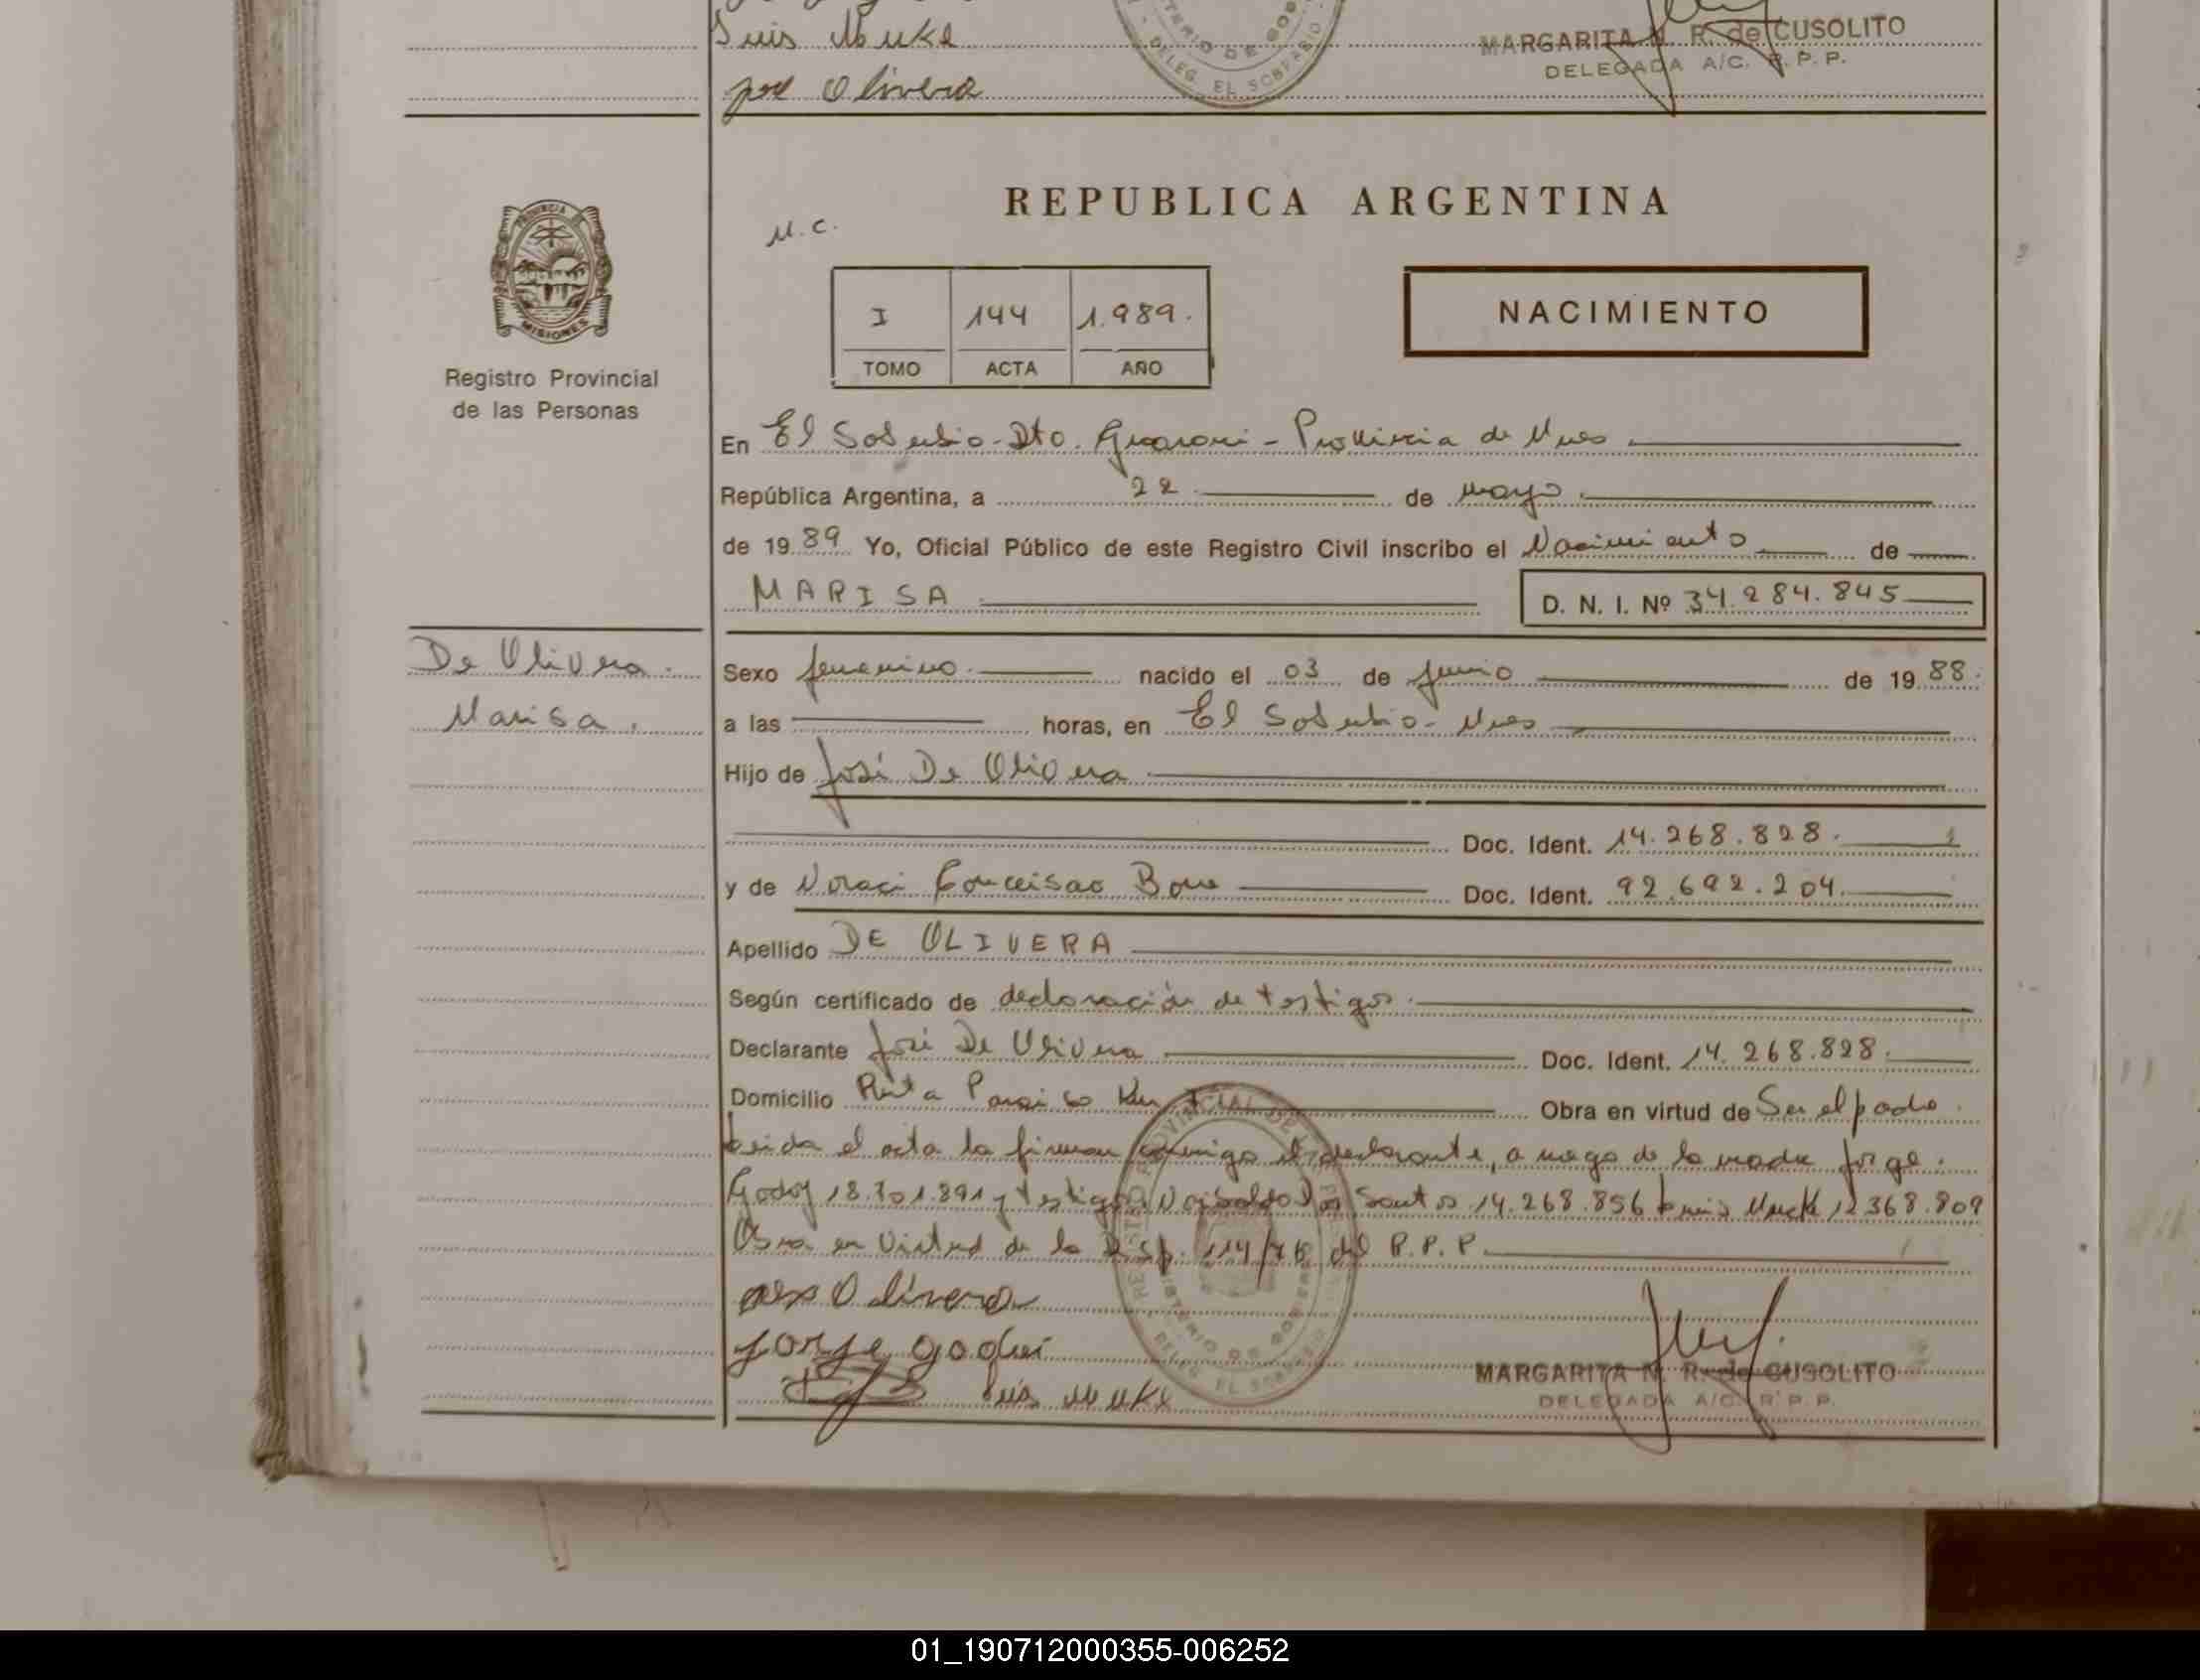 Luis Muke
MARGARITA N. R. de CUSOLITO
DELEGADA A/C. R. P. P.
jose Olivera
DELEG. EL SOBERBIO
PROVINCIA DE
MISIONES
Registro Provincial
de las Personas
REPUBLICA ARGENTINA
M.C.
I 144 1.989.
TOMO ACTA AÑO
NACIMIENTO
En El Soberbio - Dto. Guarani - Provincia de Mnes
República Argentina, a 22 de mayo
de 1989 Yo, Oficial Público de este Registro Civil inscribo el Nacimiento de
MARISA
D. N. I. Nº 34.284.845
De Olivera.
Marisa.
Sexo femenino. nacido el 03 de junio de 1988.
a las horas, en El Soberbio - Mnes
Hijo de José De Olivera
Doc. Ident. 14.268.828.
y de Noraci Conceisao Doc. Ident. 92.692.204.
Apellido DE OLIVERA
Según certificado de declaración de testigos.
Declarante José De Olivera Doc. Ident. 14.268.828.
Domicilio Ruta Paraiso Km Obra en virtud de Ser el padre.
Leida el acta la firman conmigo el declarante, a ruego de la madre Jorge
Godoy 18.701.891 y testigos Dos Santos 14.268.856 Luis Muck 12.368.809
Obra en virtud de la Disp. 114/76 del R.P.P.
Olivera
Jorge godui
Luis Muke
MARGARITA N. R. de CUSOLITO
DELEGADA A/C. R. P. P.
DELEG. EL SOBERBIO
01_190712000355-006252